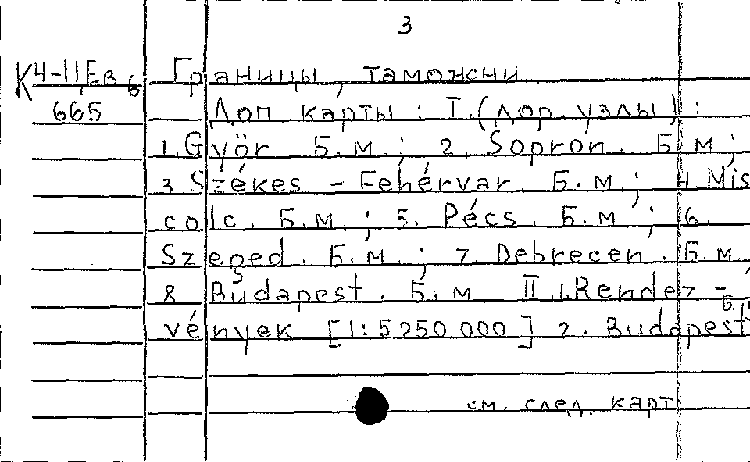 3
К4-11Ев6 Границы, таможни.
665 Доп. карты: I. (дор. узлы):
1. Győr Б.м.; 2. Sopron. Б.м;
3. Székes-Fehérvar. Б.м.; 4 Mis
colc. Б.м.; 5. Pécs. Б.м.; 6.
Szeged. Б.м.; 7. Debrecen. Б.м,
8 Budapest. Б.м. II 1. Rendez-
vények [1:5250 000] 2. Budapest
Б.м
см. след. карт